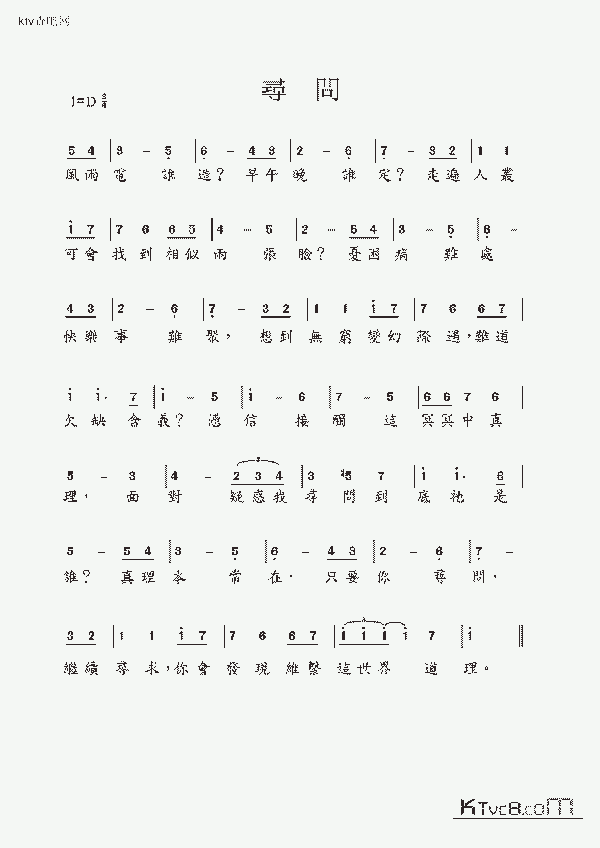 尋 問
1=D 3/4
5 4 | 3 - 5 | 6 - 4 3 | 2 - 6 | 7 - 3 2 | 1 1
風雨 電 誰 造? 早午 晚 誰 定? 走遍 人 叢
1 7 | 7 6 6 5 | 4 - 5 | 2 - 5 4 | 3 - 5 | 6 -
可會 找 到 相似 兩 張 臉? 憂困 痛 難 處
4 3 | 2 - 6 | 7 - 3 2 | 1 1 1 7 | 7 6 6 7 |
快樂 事 難 聚, 想到 無 窮 變幻 際 遇,難道
1 1. 7 | 1 - 5 | 1 - 6 | 7 - 5 | 6 6 7 6 |
欠 缺 會 義? 憑 信 接 觸 這 冥冥中 真
5 - 3 | 4 - 2 3 4 | 3 #5 7 | 1 1. 6 |
理, 面 對 疑惑我 尋 問 到 底 祂 是
5 - 5 4 | 3 - 5 | 6 - 4 3 | 2 - 6 | 7 -
誰? 真理 本 常 在, 只要 你 尋 問,
3 2 | 1 1 1 7 | 7 6 6 7 | 1 1 1 1 7 | 1
繼續 尋 求,你會 發 現 維繫 這世界 道 理。
KTvc8.com